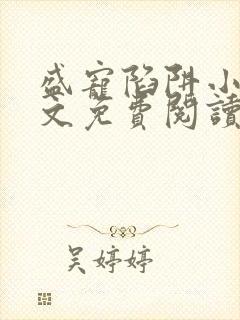 盛寵陷阱小
文免費閱讀
吴婷婷